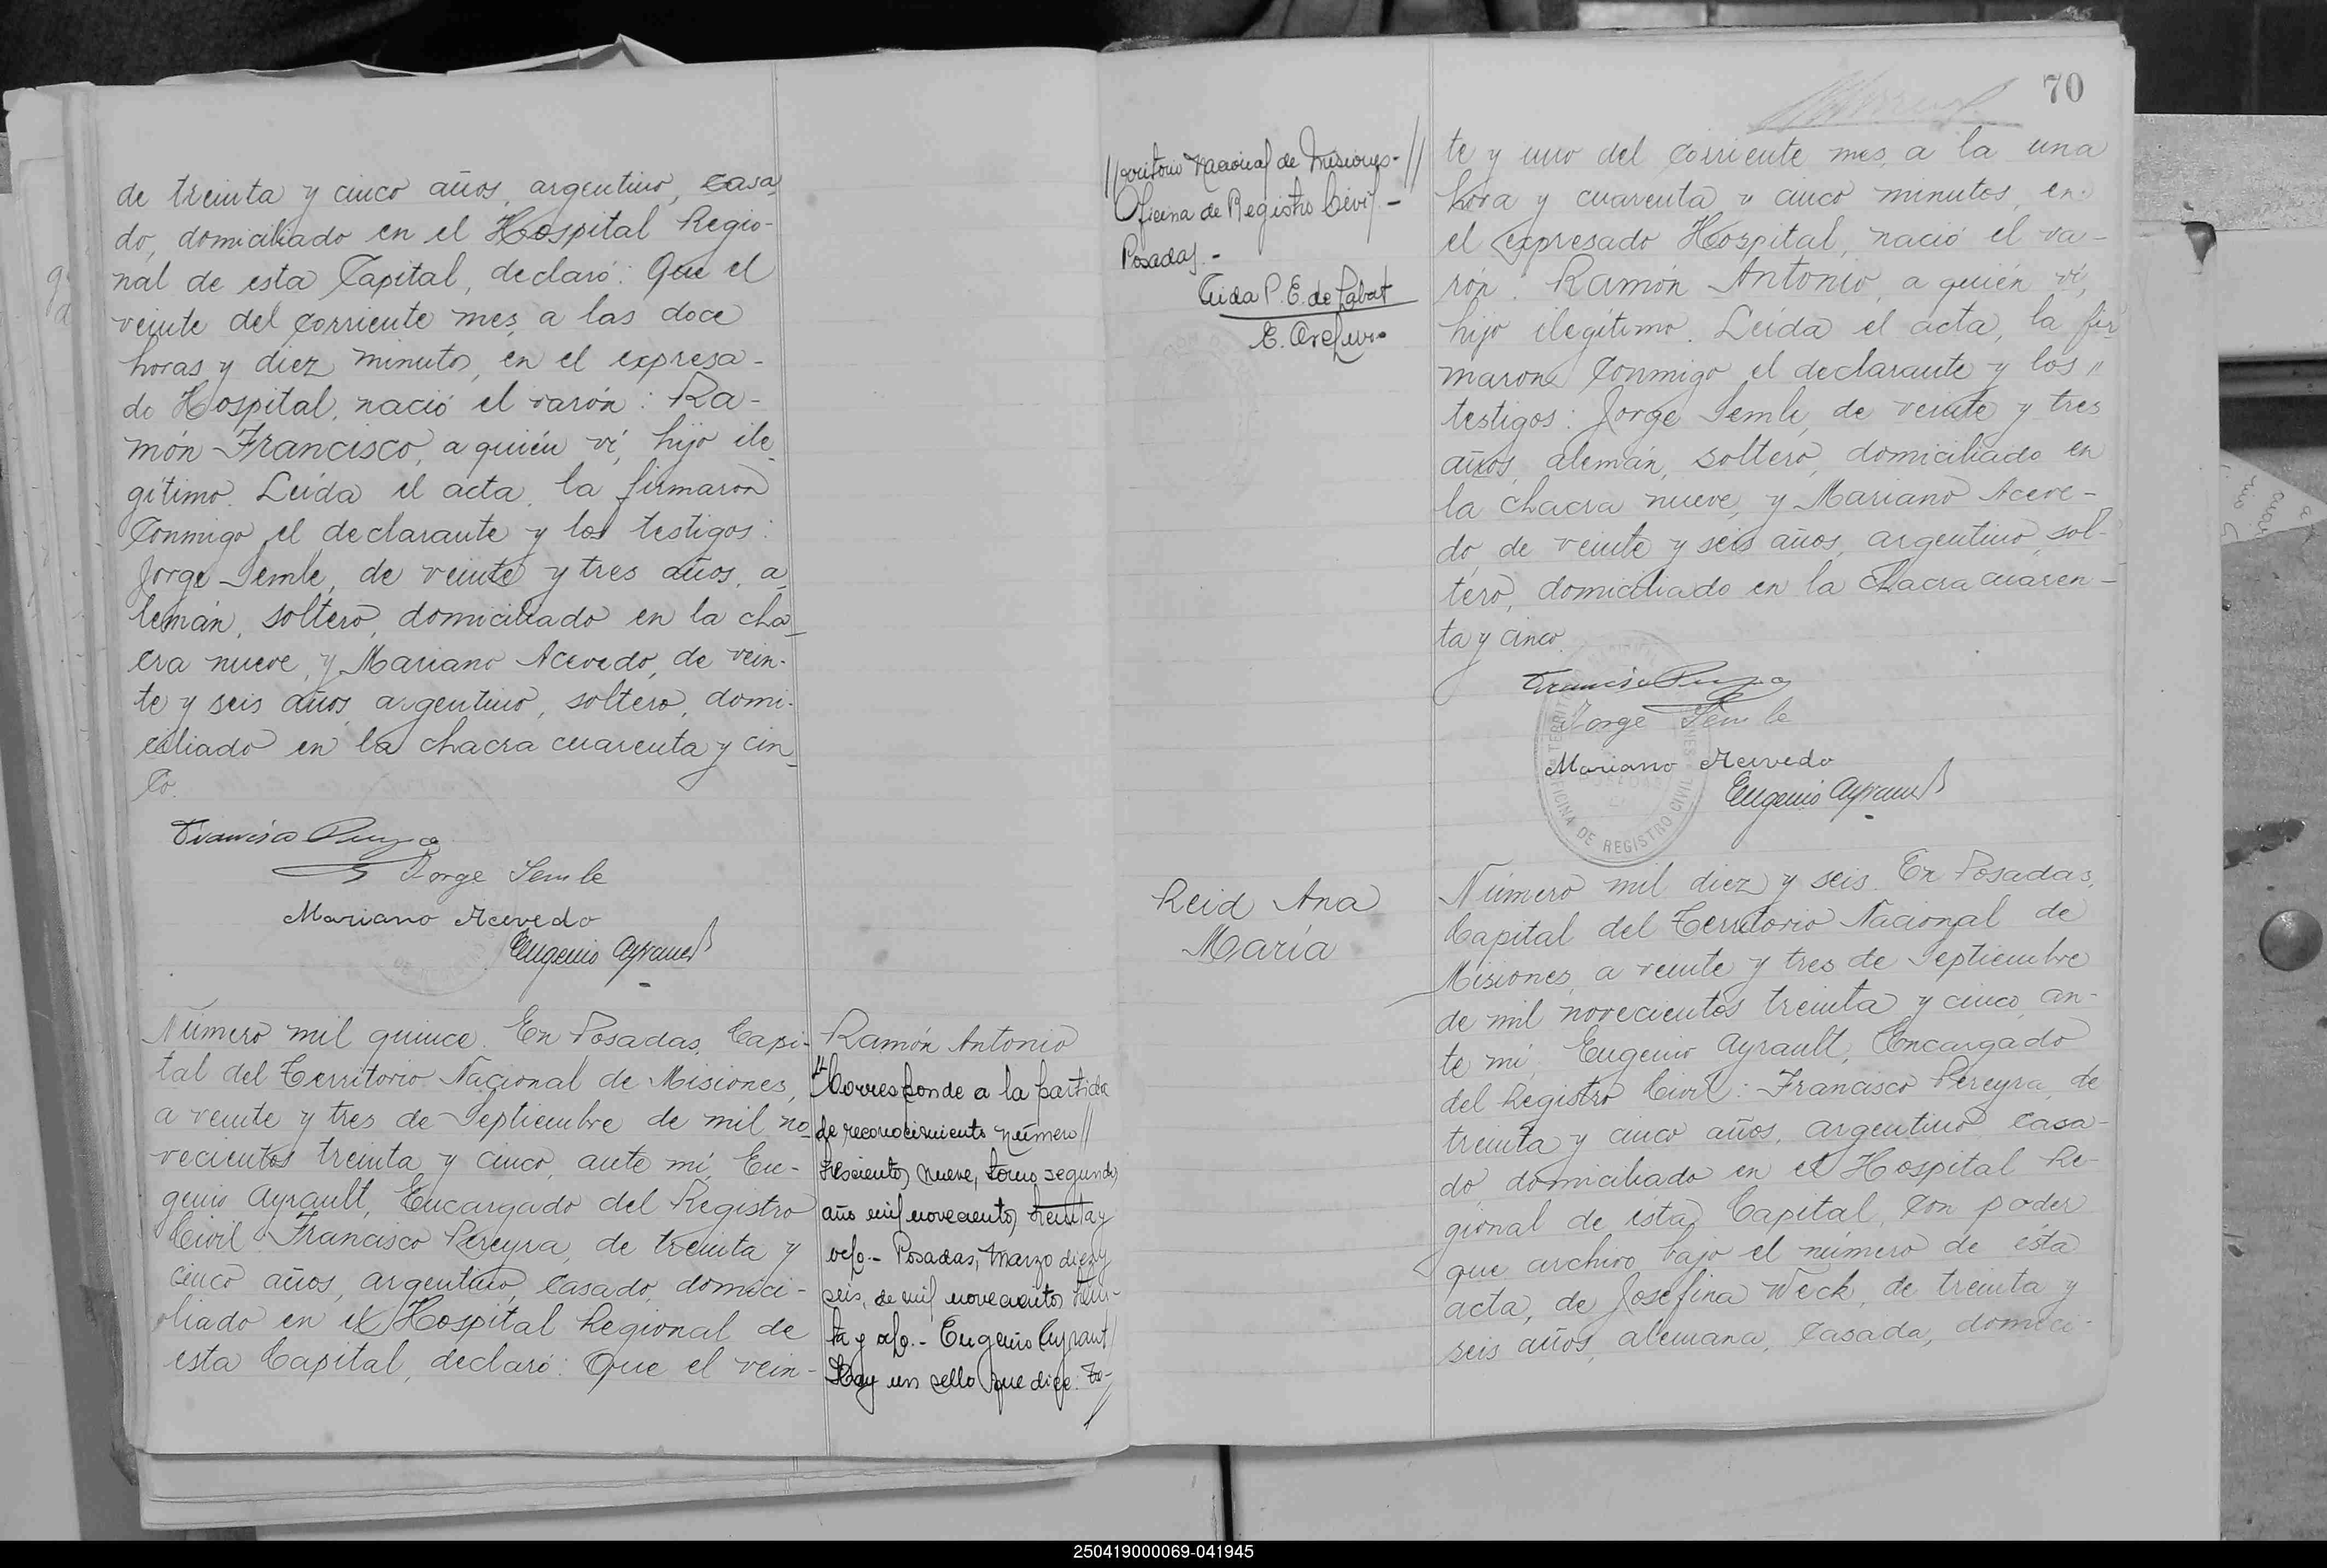 de treinta y cinco años, argentino, casa
do, domiciliado en el Hospital Regio-
nal de esta Capital, declaró: Que el
veinte del corriente mes, a las doce
horas y diez minutos, en el expresa-
do Hospital, nació el varón: Ra-
món Francisco, a quién ví, hijo ile
gítimo. Leída el acta, la firmaron
conmigo el declarante y los testigos:
Jorge Semle, de veinte y tres años, a
lemán, soltero, domiciliado en la cha
cra nueve, y Mariano Acevedo, de vein-
te y seis años, argentino, soltero, domi-
ciliado en la chacra cuarenta y cin
co.
Jorge Semle
Mariano Acevedo
Eugenio Ayrault
Número mil quince. En Posadas, Capi-
tal del Territorio Nacional de Misiones,
a veinte y tres de Septiembre de mil no
vecientos treinta y cinco, ante mí, Eu-
genio Ayrault, Encargado del Registro
Civil: Francisco Pereyra, de treinta y
cinco años, argentino, casado, domici-
liado en el Hospital Regional de
esta Capital, declaró: Que el vein-
Ramón Antonio
"Corresponde a la partida
de reconocimiento número//
trescientos nueve, tomo segundo,
año mil novecientos treinta y
ocho.- Posadas, Marzo diez y
seis, de mil novecientos trein-
ta y ocho.- Eugenio Ayrault
Hay un sello que dice: Te-//
//rritorio Nacional de Misiones-//
Oficina de Registro Civil.-
Posadas.-
70
te y uno del corriente mes, a la una
hora y cuarenta y cinco minutos, en
el expresado Hospital, nació el va-
rón: Ramón Antonio, a quién ví,
hijo ilegítimo. Leída el acta, la fir
maron conmigo el declarante y los "
testigos: Jorge Semle, de veinte y tres
años, alemán, soltero, domiciliado en
la chacra nueve, y Mariano Aceve-
do, de veinte y seis años, argentino, sol-
tero, domiciliado en la chacra cuaren-
ta y cinco.
Jorge Semle
Mariano Acevedo
Eugenio Ayrault
OFICINA DE REGISTRO CIVIL
Reid Ana
María
Número mil diez y seis. En Posadas,
Capital del Territorio Nacional de
Misiones, a veinte y tres de Septiembre
de mil novecientos treinta y cinco, an-
te mí, Eugenio Ayrault, Encargado
del Registro Civil: Francisco Pereyra, de
treinta y cinco años, argentino, casa-
do, domiciliado en el Hospital Re-
gional de ésta Capital, con poder
que archivo bajo el número de ésta
acta, de Josefina Weck, de treinta y
seis años, alemana, casada, domici-
250419000069-041945